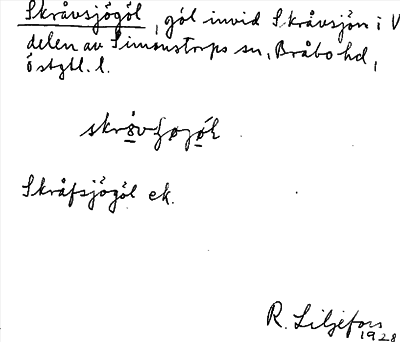 Skråvsjögöl, göl invid Skråvsjön i V
delen av Simonstorps sn, Bråbo hd,
östgtl. l.
Skråfsjögöl ek.
R. Liljefors
1928